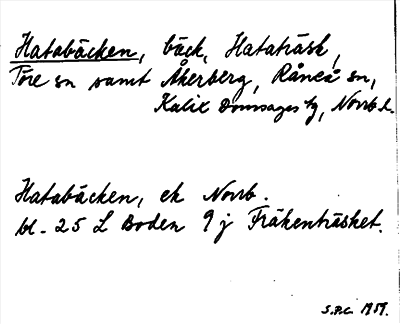 Hatabäcken, bäck, Hataträsk,
Töre sn samt Åkerberg, Råneå sn,
Kalix Domsagas tg, Norrb.l.
Hatabäcken, ek Norrb.
bl. 25 L Boden 9 j Fräkenträsket.
S.P.C. 1959.